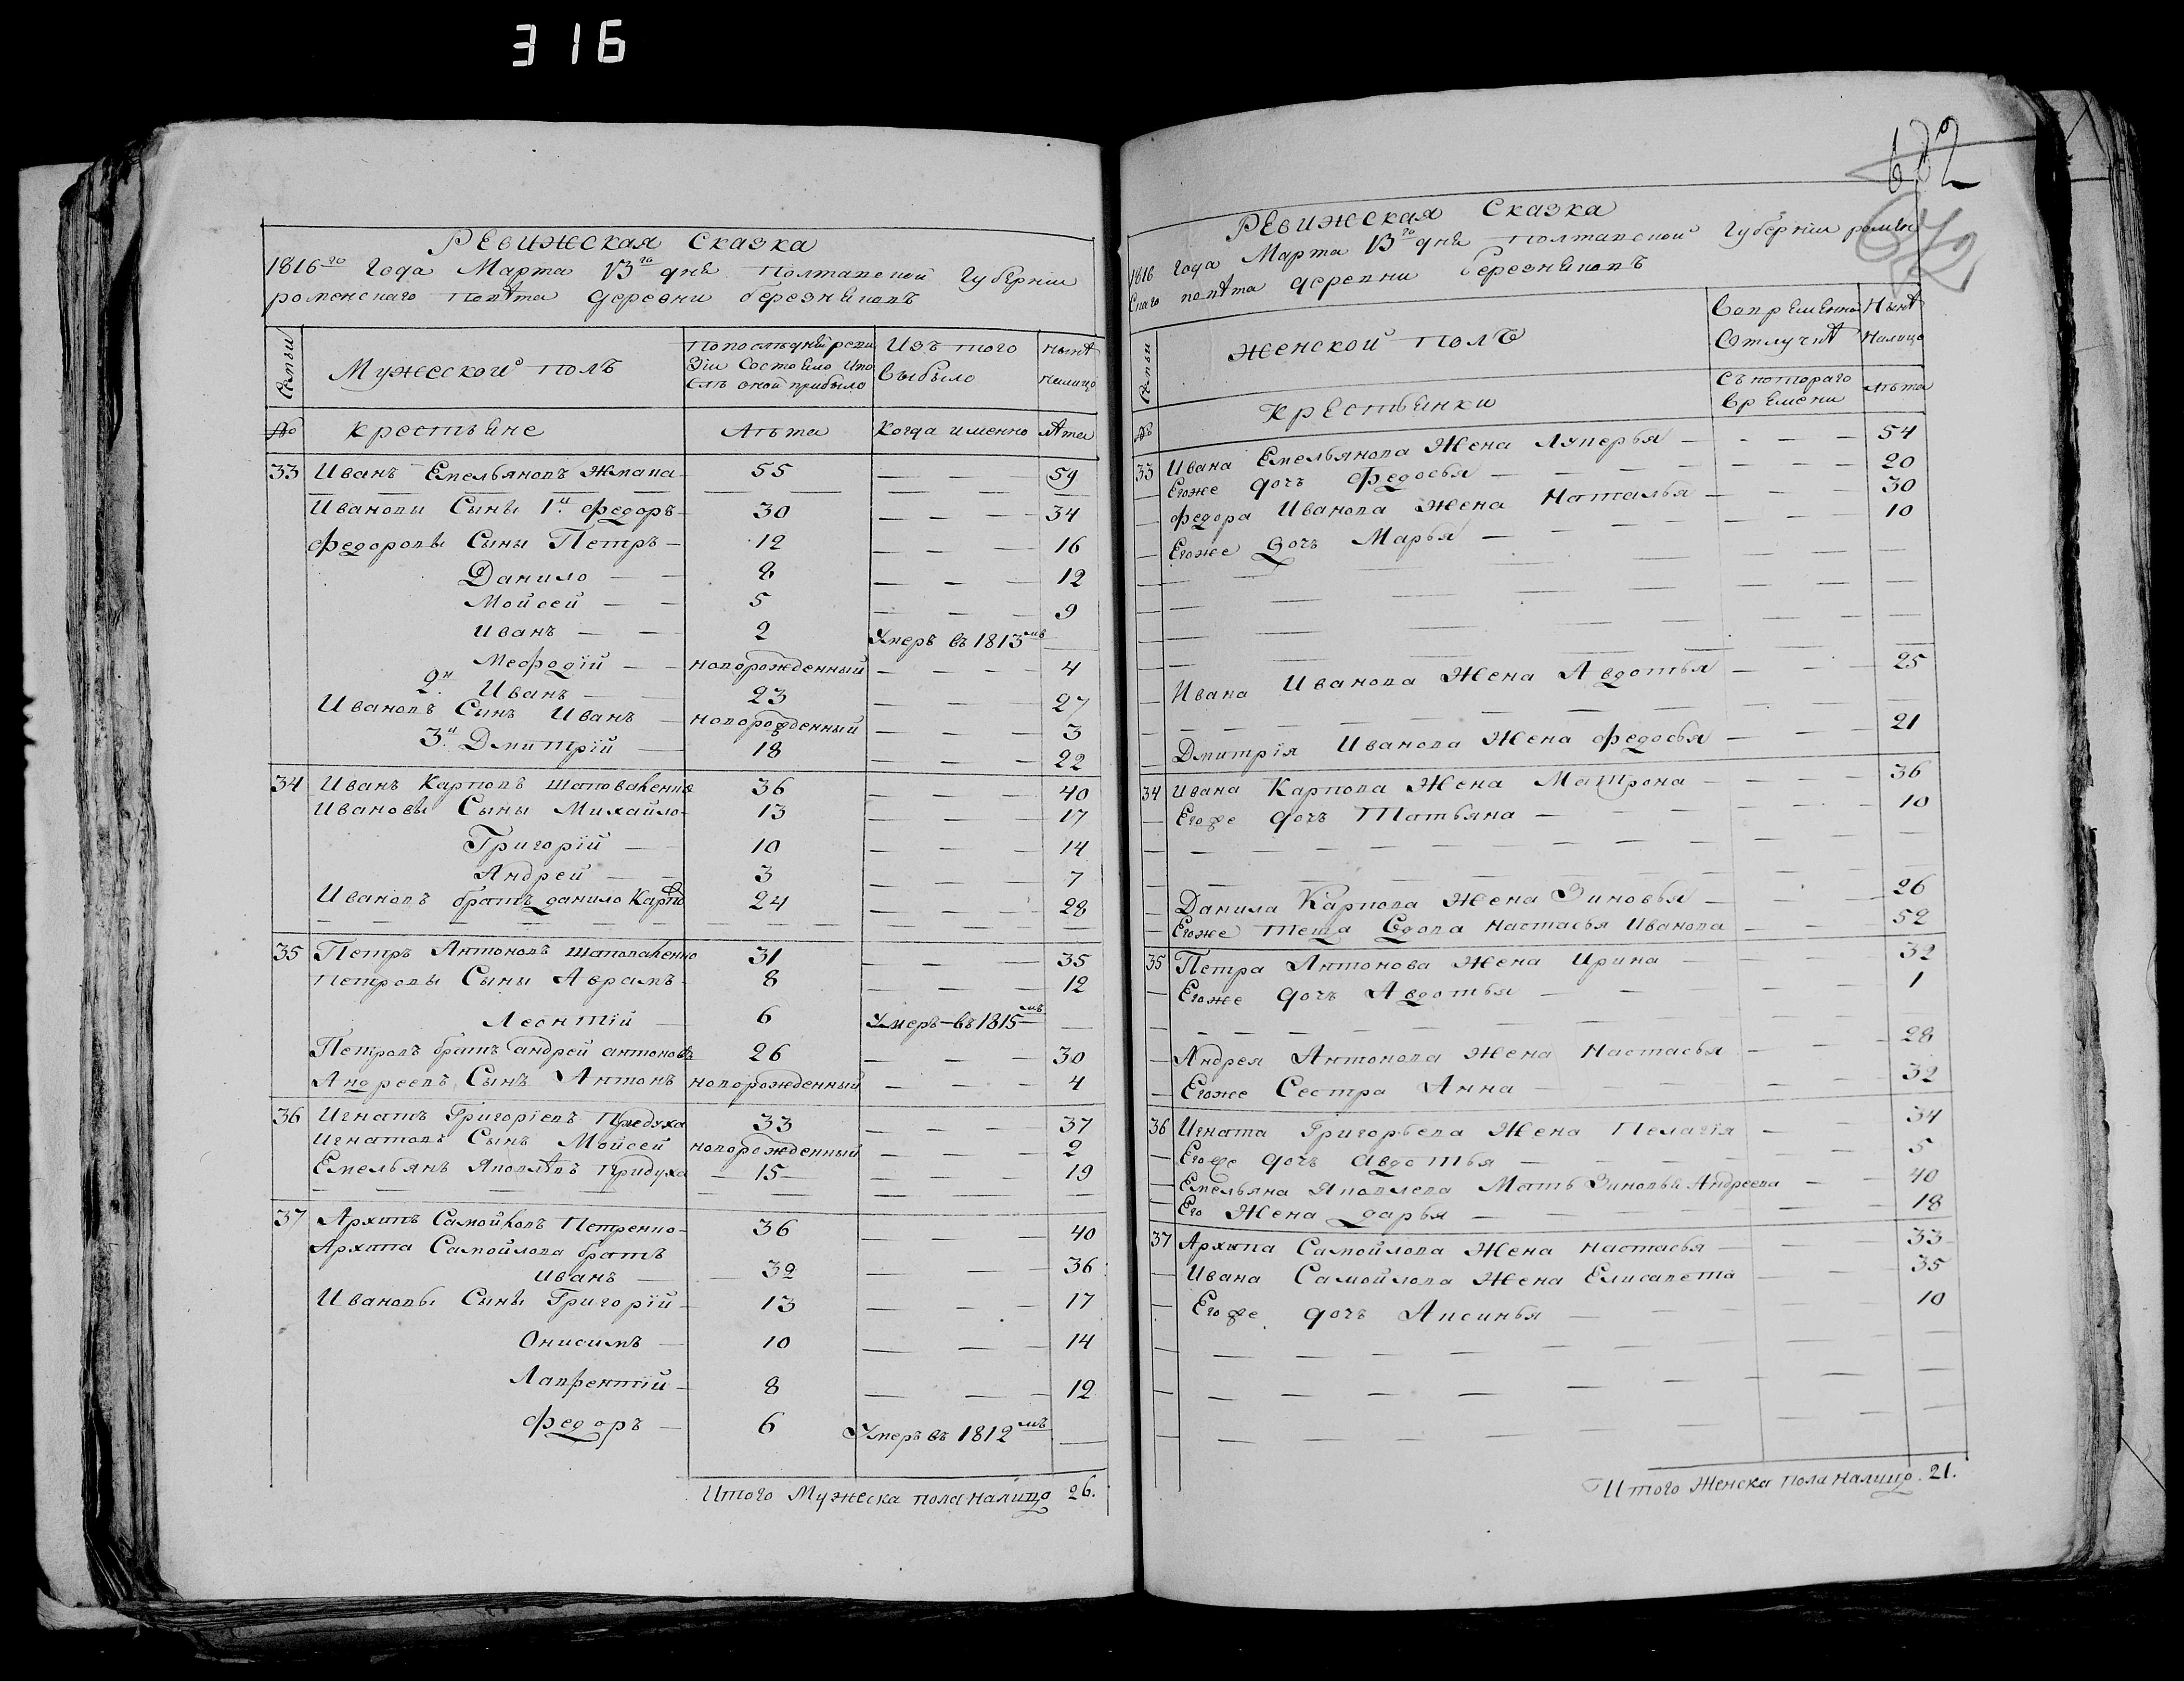 316
Ревижская Сказка
1816го Года Марта 13го дня Полтавской Губернии
роменскаго повѣта деревни березняковъ
Семьи
Мужеской полъ
По последней реви
зіи Состояло ипо
слѣ оной прибыло
Изъ того
Выбыло
Нынѣ
налицо
№ крестьяне Лѣта Когда именно лѣта
33 Иванъ Емельяновъ Жмака 55 — — — 59
Ивановы Сыны 1й Федоръ 30 — — — 34
Федоровы Сыны Петръ 12 — — — 16
Данило 8 — — — 12
Мойсей 5 — — — 9
Иванъ 2 Умеръ въ 1813мъ —
Мефодій новорожденный — — — 4
2й Иванъ 23 — — — 27
Ивановъ Сынъ Иванъ новорожденный — — — 3
3й Дмитрій 18 — — — 22
34 Иванъ Карповъ Шаповаленко 36 — — — 40
Ивановы Сыны Михайло 13 — — — 17
Григорій 10 — — — 14
Андрей 3 — — — 7
Ивановъ братъ данило Карпо 24 — — — 28
35 Петръ Антоновъ Шаповаленко 31 — — — 35
Петровы Сыны Аврамъ 8 — — — 12
Леонтій 6 Умеръ въ 1815мъ —
Петровъ братъ андрей антоновъ 26 — — — 30
Андреевъ Сынъ Антонъ новорожденный — — — 4
36 Игнатъ Григоріевъ Придуха 33 — — — 37
Игнатовъ Сынъ Мойсей новорожденный — — — 2
Емельянъ Яковлѣвъ Придуха 15 — — — 19
37 Архипъ Самойловъ Петренко 36 — — — 40
Архипа Самойлова братъ
Иванъ 32 — — — 36
Ивановы Сыны Григорій 13 — — — 17
Онисимъ 10 — — — 14
Лаврентій 8 — — — 12
Федоръ 6 Умеръ въ 1812мъ —
Итого Мужеска пола налицо 26.
672
Ревижская Сказка
1816 Года Марта 13го дня Полтавской Губерніи ромен
скаго повѣта деревни березняковъ
Семьи
Женской полъ
Вовременной
Отлучкѣ
Нынѣ
Налицо
№ крестьянки
Съкотораго
времени
лѣта
33 Ивана Емельянова Жена Лукерья — — — 54
Егоже дочь Федосья — — — 20
Федора Иванова Жена Наталья — — — 30
Егоже дочь Марья — — — 10
Ивана Иванова Жена Авдотья — — — 25
Дмитрія Иванова Жена Федосья — — — 21
34 Ивана Карпова Жена Матрона — — — 36
Егоже дочь Татьяна — — — 10
Данила Карпова Жена Зиновья — — — 26
Егоже теща вдова настасья Иванова — — — 52
35 Петра Антонова Жена Ирина — — — 32
Егоже дочь Авдотья — — — 1
Андрея Антонова Жена Настасья — — — 28
Егоже Сестра Анна — — — 32
36 Игната Григорьева Жена Пелагія — — — 34
Егоже дочь Авдотья — — — 5
Емельяна Яковлева Мать Зиновья Андреева — — 40
Его Жена дарья — — — 18
37 Архипа Самойлова Жена настасья — — — 33
Ивана Самойлова Жена Елисавета — — — 35
Егоже дочь Аксинья — — — 10
Итого Женска пола налицо 21.